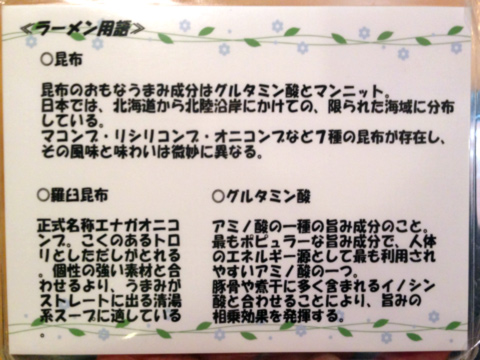 ≪ラーメン用語≫
○昆布
昆布のおもなうまみ成分はグルタミン酸とマンニット。
日本では、北海道から北陸沿岸にかけての、限られた海域に分布
している。
マコンブ・リシリコンブ・オニコンブなど7種の昆布が存在し、
その風味と味わいは微妙に異なる。
○羅臼昆布
正式名称エナガオニコ
ンブ。こくのあるトロ
リとしただしがとれる
。個性の強い素材と合
わせるより、うまみが
ストレートに出る清湯
系スープに適している
。
○グルタミン酸
アミノ酸の一種の旨み成分のこと。
最もポピュラーな旨み成分で、人体
のエネルギー源として最も利用され
やすいアミノ酸の一つ。
豚骨や煮干に多く含まれるイノシン
酸と合わせることにより、旨みの
相乗効果を発揮する。